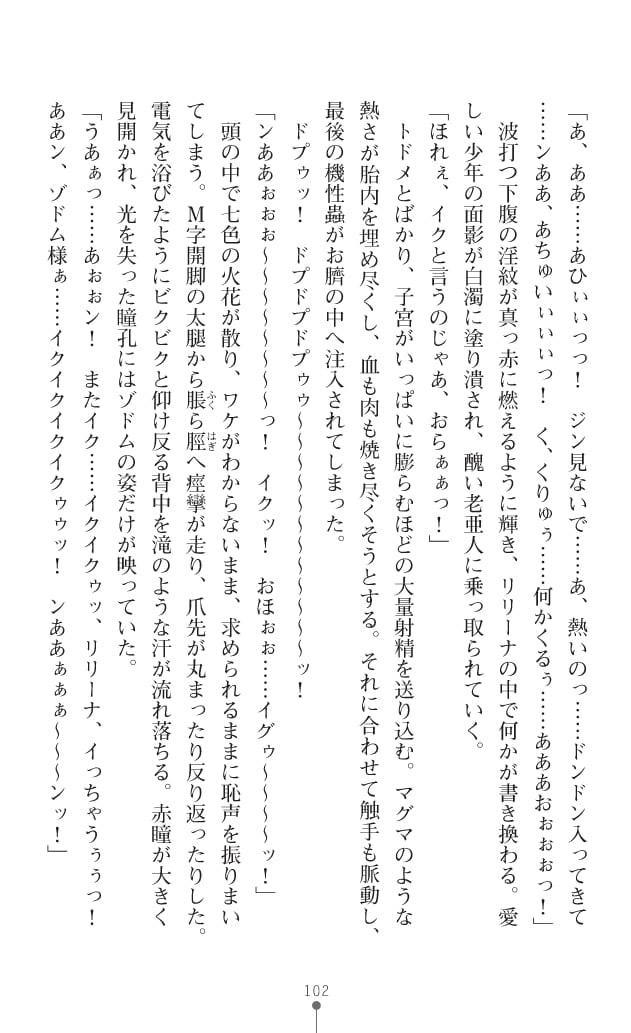 「あ、ああ……あひぃぃっっ！　ジン見ないで……あ、熱いのっ……ドンドン入ってきて
……ンああ、あちゅいぃぃぃっ！　く、くりゅぅ……何かくるぅ……あああおぉぉぉっ！」
　波打つ下腹の淫紋が真っ赤に燃えるように輝き、リリーナの中で何かが書き換わる。愛
しい少年の面影が白濁に塗り潰され、醜い老亜人に乗っ取られていく。
「ほれぇ、イクと言うのじゃあ、おらぁぁっ！」
　トドメとばかり、子宮がいっぱいに膨らむほどの大量射精を送り込む。マグマのような
熱さが胎内を埋め尽くし、血も肉も焼き尽くそうとする。それに合わせて触手も脈動し、
最後の機性蟲がお臍の中へ注入されてしまった。
　ドプゥッ！　ドプドプドプゥゥ～～～～～～～～～～～ッ！
「ンああぉぉぉ～～～～～～～っ！　イクッ！　おほぉぉ……イグゥ～～～～ッ！」
　頭の中で七色の火花が散り、ワケがわからないまま、求められるままに恥声を振りまい
てしまう。Ｍ字開脚の太腿から脹ら脛へ痙攣が走り、爪先が丸まったり反り返ったりした。
電気を浴びたようにビクビクと仰け反る背中を滝のような汗が流れ落ちる。赤瞳が大きく
見開かれ、光を失った瞳孔にはゾドムの姿だけが映っていた。
「うあぁっ……あぉぉン！　またイク……イクイクゥッ、リリーナ、イっちゃうぅぅっ！
ああン、ゾドム様ぁ……イクイクイクイクゥゥッ！　ンああぁぁぁ～～～ンッ！」
ふく
はぎ
102